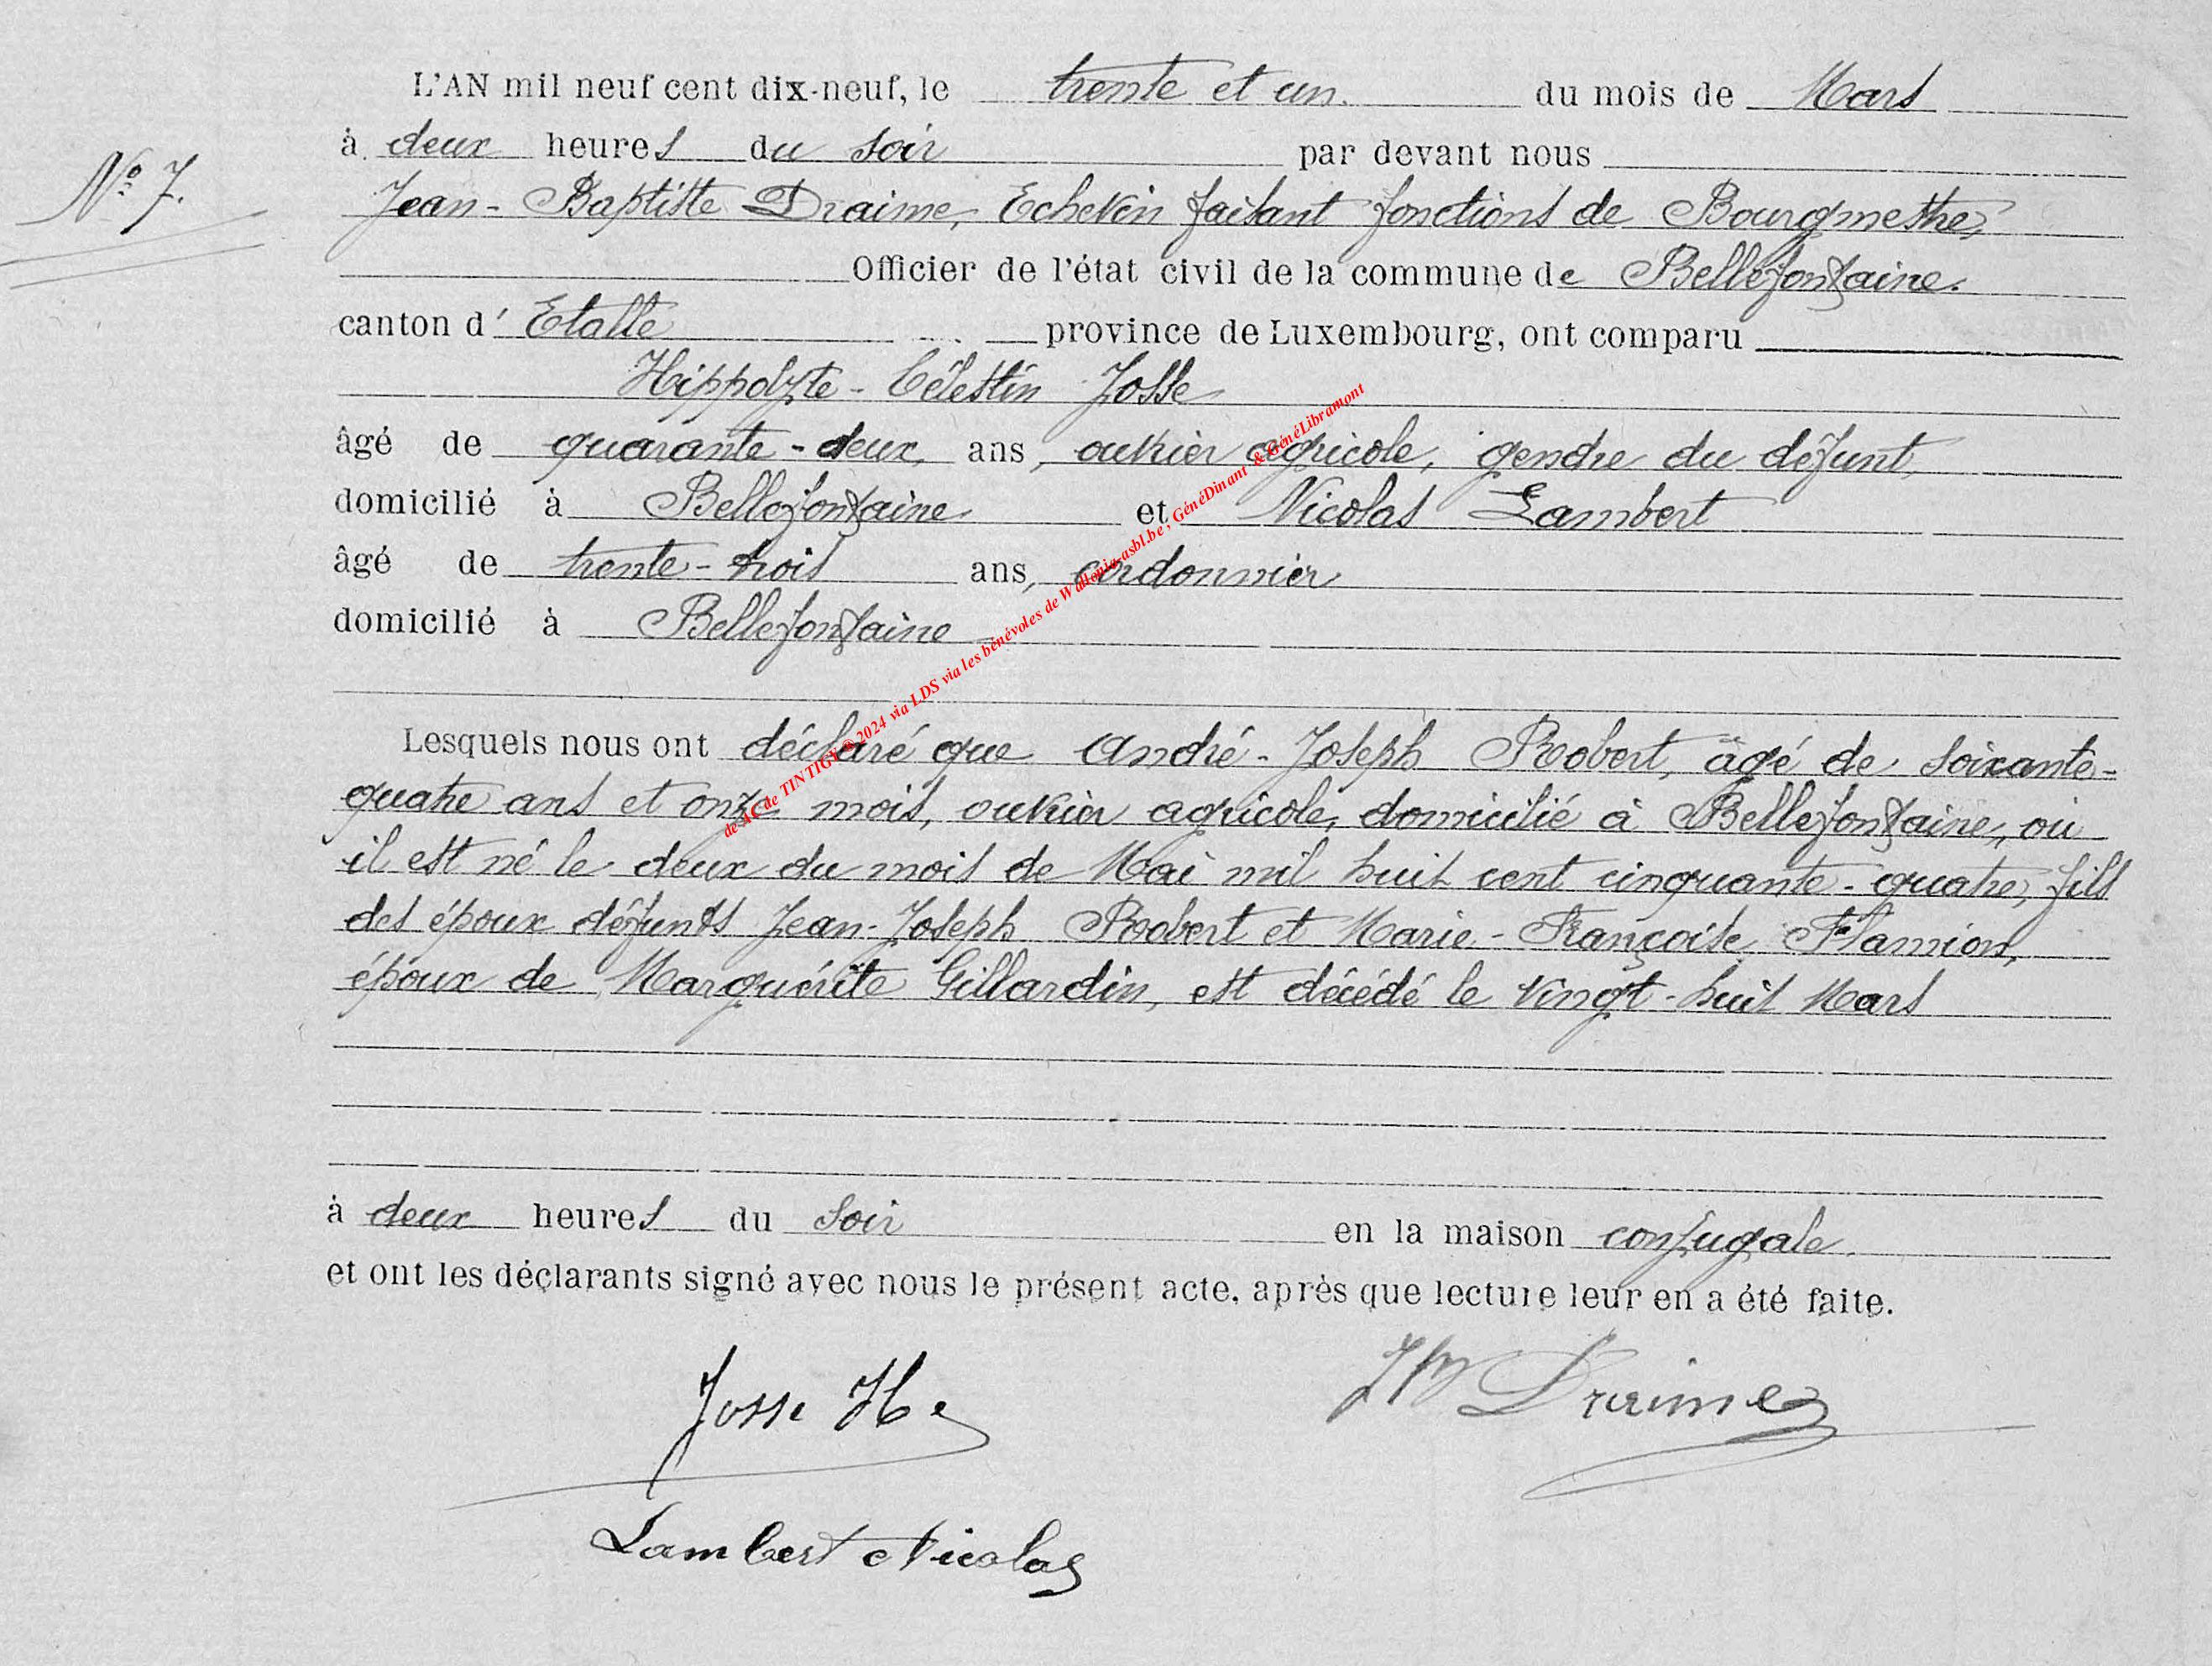 L'AN mil neuf cent dix-neuf, le trente et un. du mois de Mars
à deux heures du soir par devant nous
N° 7.
Jean-Baptiste Draime, Echevin faisant fonctions de Bourgmestre,
Officier de l'état civil de la commune de Bellefontaine.
canton d'Etalle province de Luxembourg, ont comparu
Hippolyte-Célestin Josse
âgé de quarante-deux ans, ouvrier agricole, gendre du défunt,
domicilié à Bellefontaine et Nicolas Lambert
âgé de trente-trois ans, cordonnier
domicilié à Bellefontaine
Lesquels nous ont déclaré que André-Joseph Robert, âgé de soixante-
quatre ans et onze mois, ouvrier agricole, domicilié à Bellefontaine, où
il est né le deux du mois de Mai mil huit cent cinquante-quatre, fils
des époux défunts Jean-Joseph Robert et Marie-Françoise Flamion,
époux de Marguérite Gillardin, est décédé le vingt-huit Mars
à deux heures du soir en la maison conjugale.
et ont les déclarants signé avec nous le présent acte, après que lecture leur en a été faite.
Josse He
JB Draime
Lambert Nicolas
de AC de TINTIGY © 2024 via LDS via les bénévoles de Wallonia-asbl.be, GénéDinant & GénéLibramont